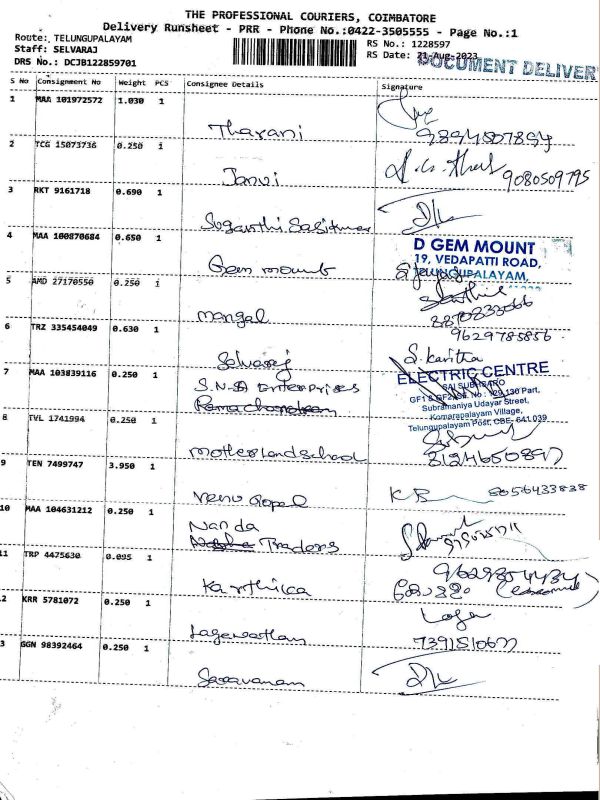 THE PROFESSIONAL COURIERS, COIMBATORE
Delivery Runsheet - PRR - Phone No.:0422-3505555 - Page No.:1
Route: TELUNGUPALAYAM
RS No.: 1228597
Staff: SELVARAJ
RS Date: 21-Aug-2023
DOCUMENT DELIVER
DRS No.: DCJB122859701
S No Consignment No Weight PCS Consignee Details Signature
1 MAA 101972572 1.030 1
Tharani 9894507894
2 TCG 15073736 0.250 1
Janvi 9080509795
3 RKT 9161718 0.690 1
4 MAA 100870684 0.650 1
D GEM MOUNT
19, VEDAPATTI ROAD,
Gem mount TELUNGUPALAYAM,
5 AMD 27170550 0.250 1
mangal 8870833066
6 TRZ 335454049 0.630 1 9629785856
Selvaraj S. Kavitha
7 MAA 103839116 0.250 1 ELECTRIC CENTRE
S.N.S Enterprises
Ramachandran
Subramaniya Udayar Street,
Komarapalayam Village,
Telungupalayam Post, CBE- 641 039
8 TVL 1741994 0.250 1
motherland school
9 TEN 7499747 3.950 1
Venu Gopal 8056433838
10 MAA 104631212 0.250 1
Nanda
Tradors
11 TRP 4475630 0.095 1
Karthika
2 KRR 5781072 0.250 1
3 GGN 98392464 0.250 1
Saravanam